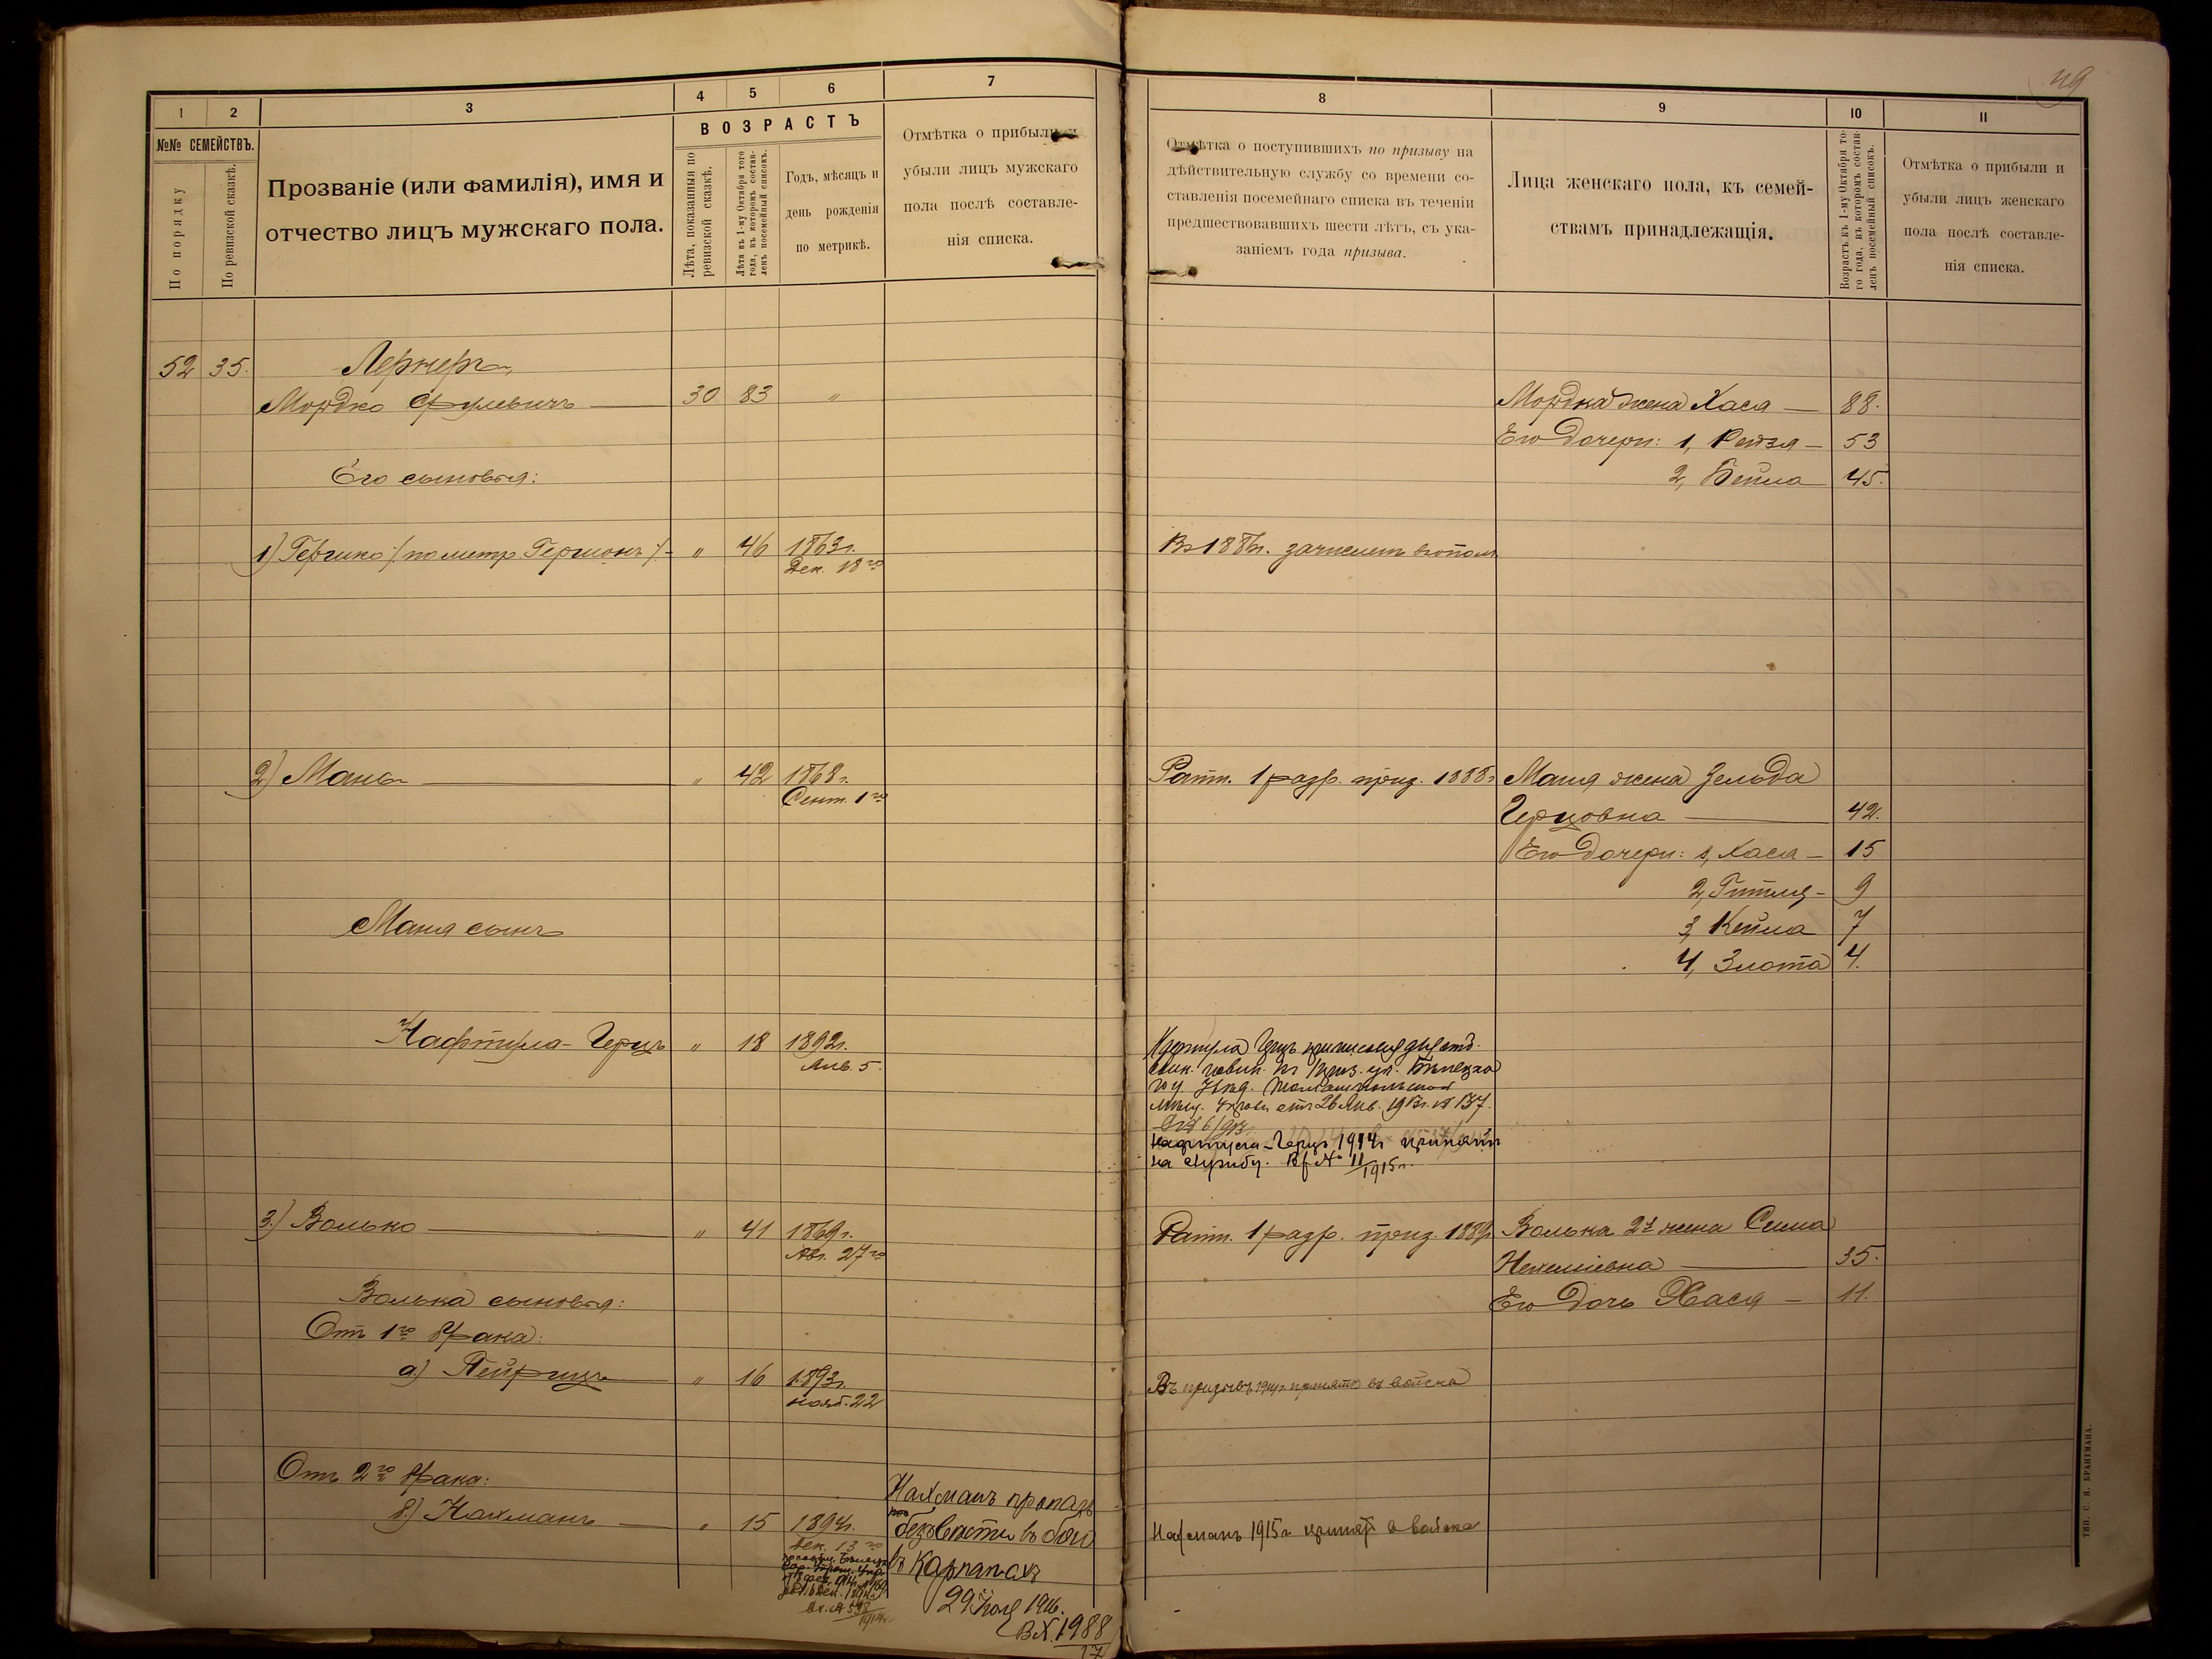 49
1
2
3
4
5
6
7
№№ СЕМЕЙСТВЪ.
По порядку
По ревизской сказкѣ.
Прозваніе (или фамилія), имя и
отчество лицъ мужскаго пола.
ВОЗРАСТЪ
Лѣта, показанныя по
ревизской сказкѣ.
Лѣта къ 1-му Октября того
года, въ которомъ состав-
ленъ посемейный списокъ.
Годъ, мѣсяцъ и
день рожденія
по метрикѣ.
Отмѣтка о прибыли и
убыли лицъ мужскаго
пола послѣ составле-
нія списка.
52 35. Лернеръ
Мордко Срулевичъ 30 83 "
Его сыновья:
1) Гершко /: по метр. Гершонъ :/ " 46 1863г.
Дек. 18го
2) Мань " 42 1868г.
Сент. 1го
Маня сынъ
Нафтула-Герцъ " 18 1892г.
Янв. 5.
3.) Волько " 41 1869г.
Авг. 27го
Волька сыновья:
Отъ 1го брака:
а) Пейрицъ " 16 1893г.
нояб. 22
Отъ 2го брака:
б) Нахманъ " 15 1894г.
Дек. 13го
Нахманъ пропалъ
безъ вѣсти въ бою
въ Карпатахъ
29 1916.
Вх. 1988
17
8
9
10
11
Отмѣтка о поступившихъ по призыву на
дѣйствительную службу со времени со-
ставленія посемейнаго списка въ теченіи
предшествовавшихъ шести лѣтъ, съ ука-
заніемъ года призыва.
Лица женскаго пола, къ семей-
ствамъ принадлежащія.
Возрастъ къ 1-му Октября то-
го года, въ которомъ состав-
ленъ посемейный списокъ.
Отмѣтка о прибыли и
убыли лицъ женскаго
пола послѣ составле-
нія списка.
Мордка жена Хася 88.
Его дочери: 1, Рейзя 53
2, Бейла 45.
Въ 1886г. зачисленъ в ополч.
Ратн. 1 разр. приз. 1888г. Маня жена Зельда
Герцовна 42.
Его дочери: 1, Хася 15
2, Гитля 9
3, Кейла 7
4, Злота 4.
Нафтула Герцъ
отъ 26 Янв. 1913г. № 137.
Нафтула-Герцъ 1914г принятъ
на службу. Вх № 11/1915г.
Ратн. 1 разр. приз. 1889г. Волька 2я жена Сима
Нехемiевна 35.
Его дочь Хася 11.
Въ призывъ 1914г. принятъ въ войска
Нахманъ 1915г принятъ в войска
ТИП. С. Н. БРАНТМАНА.